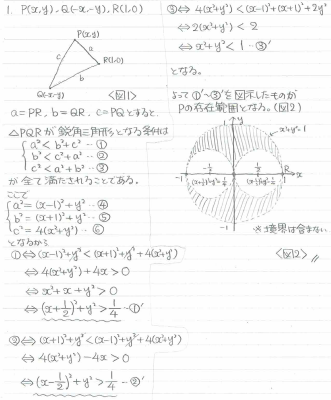 1. P(x,y), Q(-x,-y), R(1,0)
P(x,y)
c
a
R(1,0)
b
Q(-x,-y)
<図1>
a=PR, b=QR, c=PQとすると、
△PQRが鋭角三角形となる条件は
a²<b²+c² …①
b²<c²+a² …②
c²<a²+b² …③
が全て満たされることである。
ここで
a²=(x-1)²+y² …④
b²=(x+1)²+y² …⑤
c²=4(x²+y²) …⑥
となるから
①⇔(x-1)²+y²<(x+1)²+y²+4(x²+y²)
⇔4(x²+y²)+4x>0
⇔x²+x+y²>0
⇔(x+1/2)²+y²>1/4 …①'
②⇔(x+1)²+y²<(x-1)²+y²+4(x²+y²)
⇔4(x²+y²)-4x>0
⇔(x-1/2)²+y²>1/4 …②'
③⇔4(x²+y²)<(x-1)²+(x+1)²+2y²
⇔2(x²+y²)<2
⇔x²+y²<1 …③'
となる。
よって①'~③'を図示したものが
Pの存在範囲となる。(図2)
y
1
x²+y²=1
-1
-1/2
1/2
R
1
x
(x+1/2)²+y²=1/4
(x-1/2)²+y²=1/4
-1
※境界は含まない
<図2>